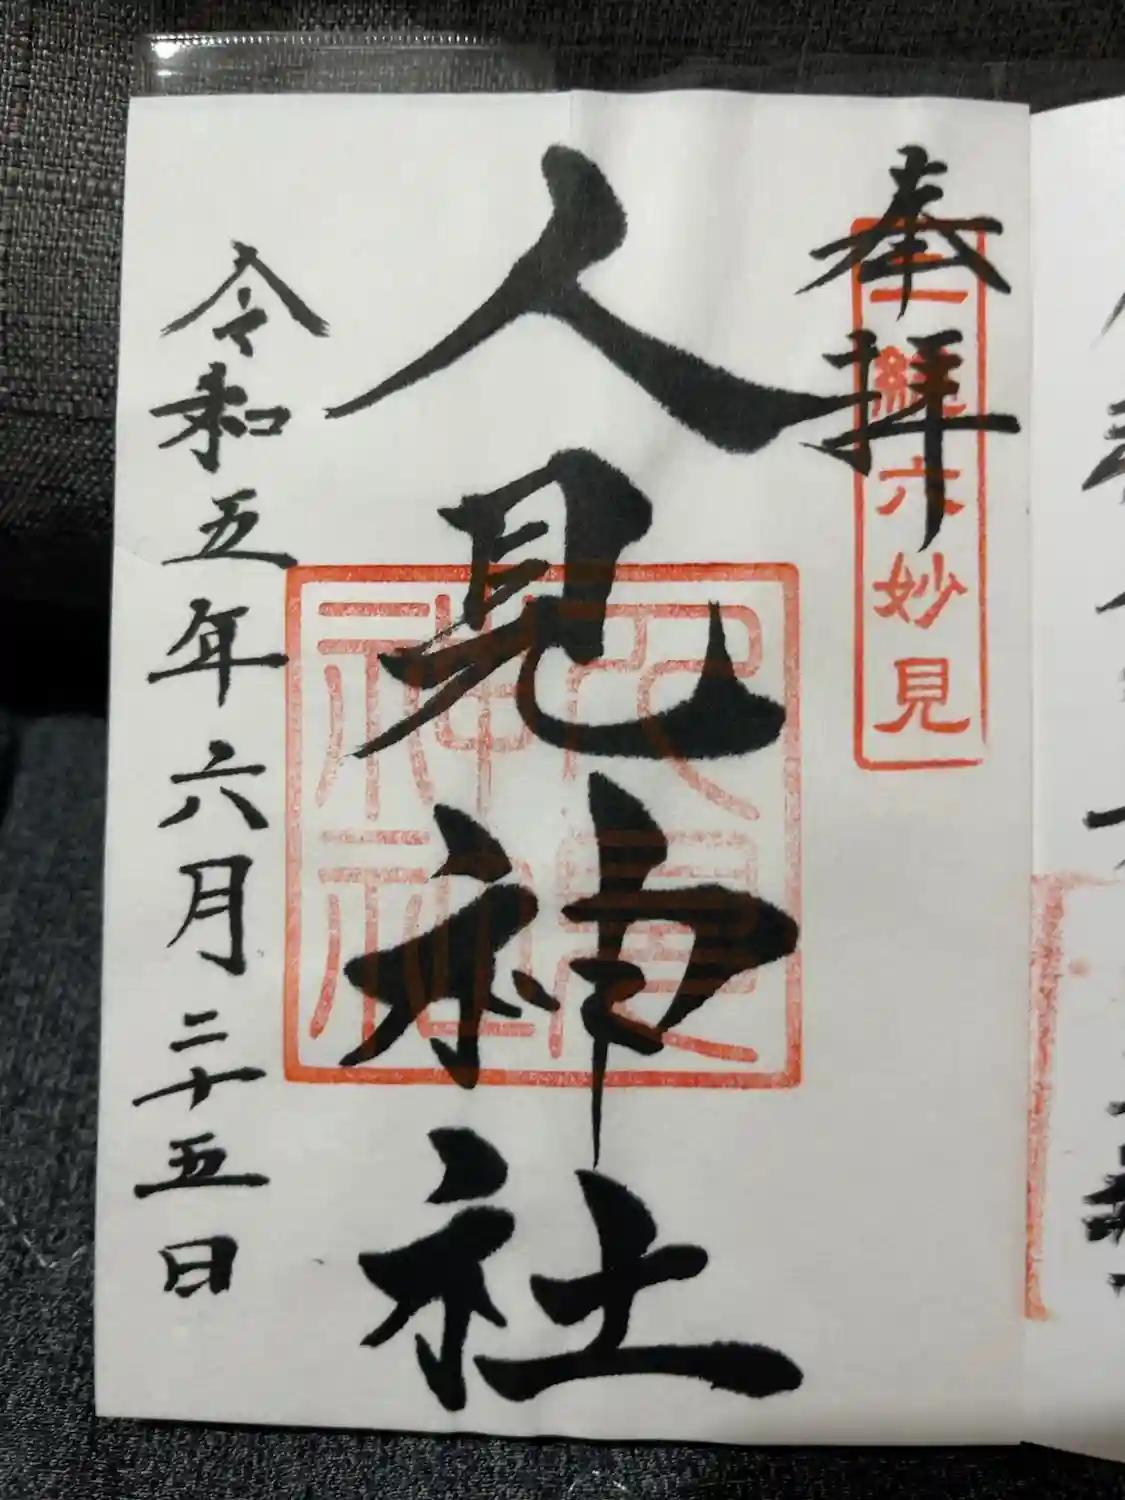 奉拝
上総六妙見
人見神社
人見神社
令和五年六月二十五日